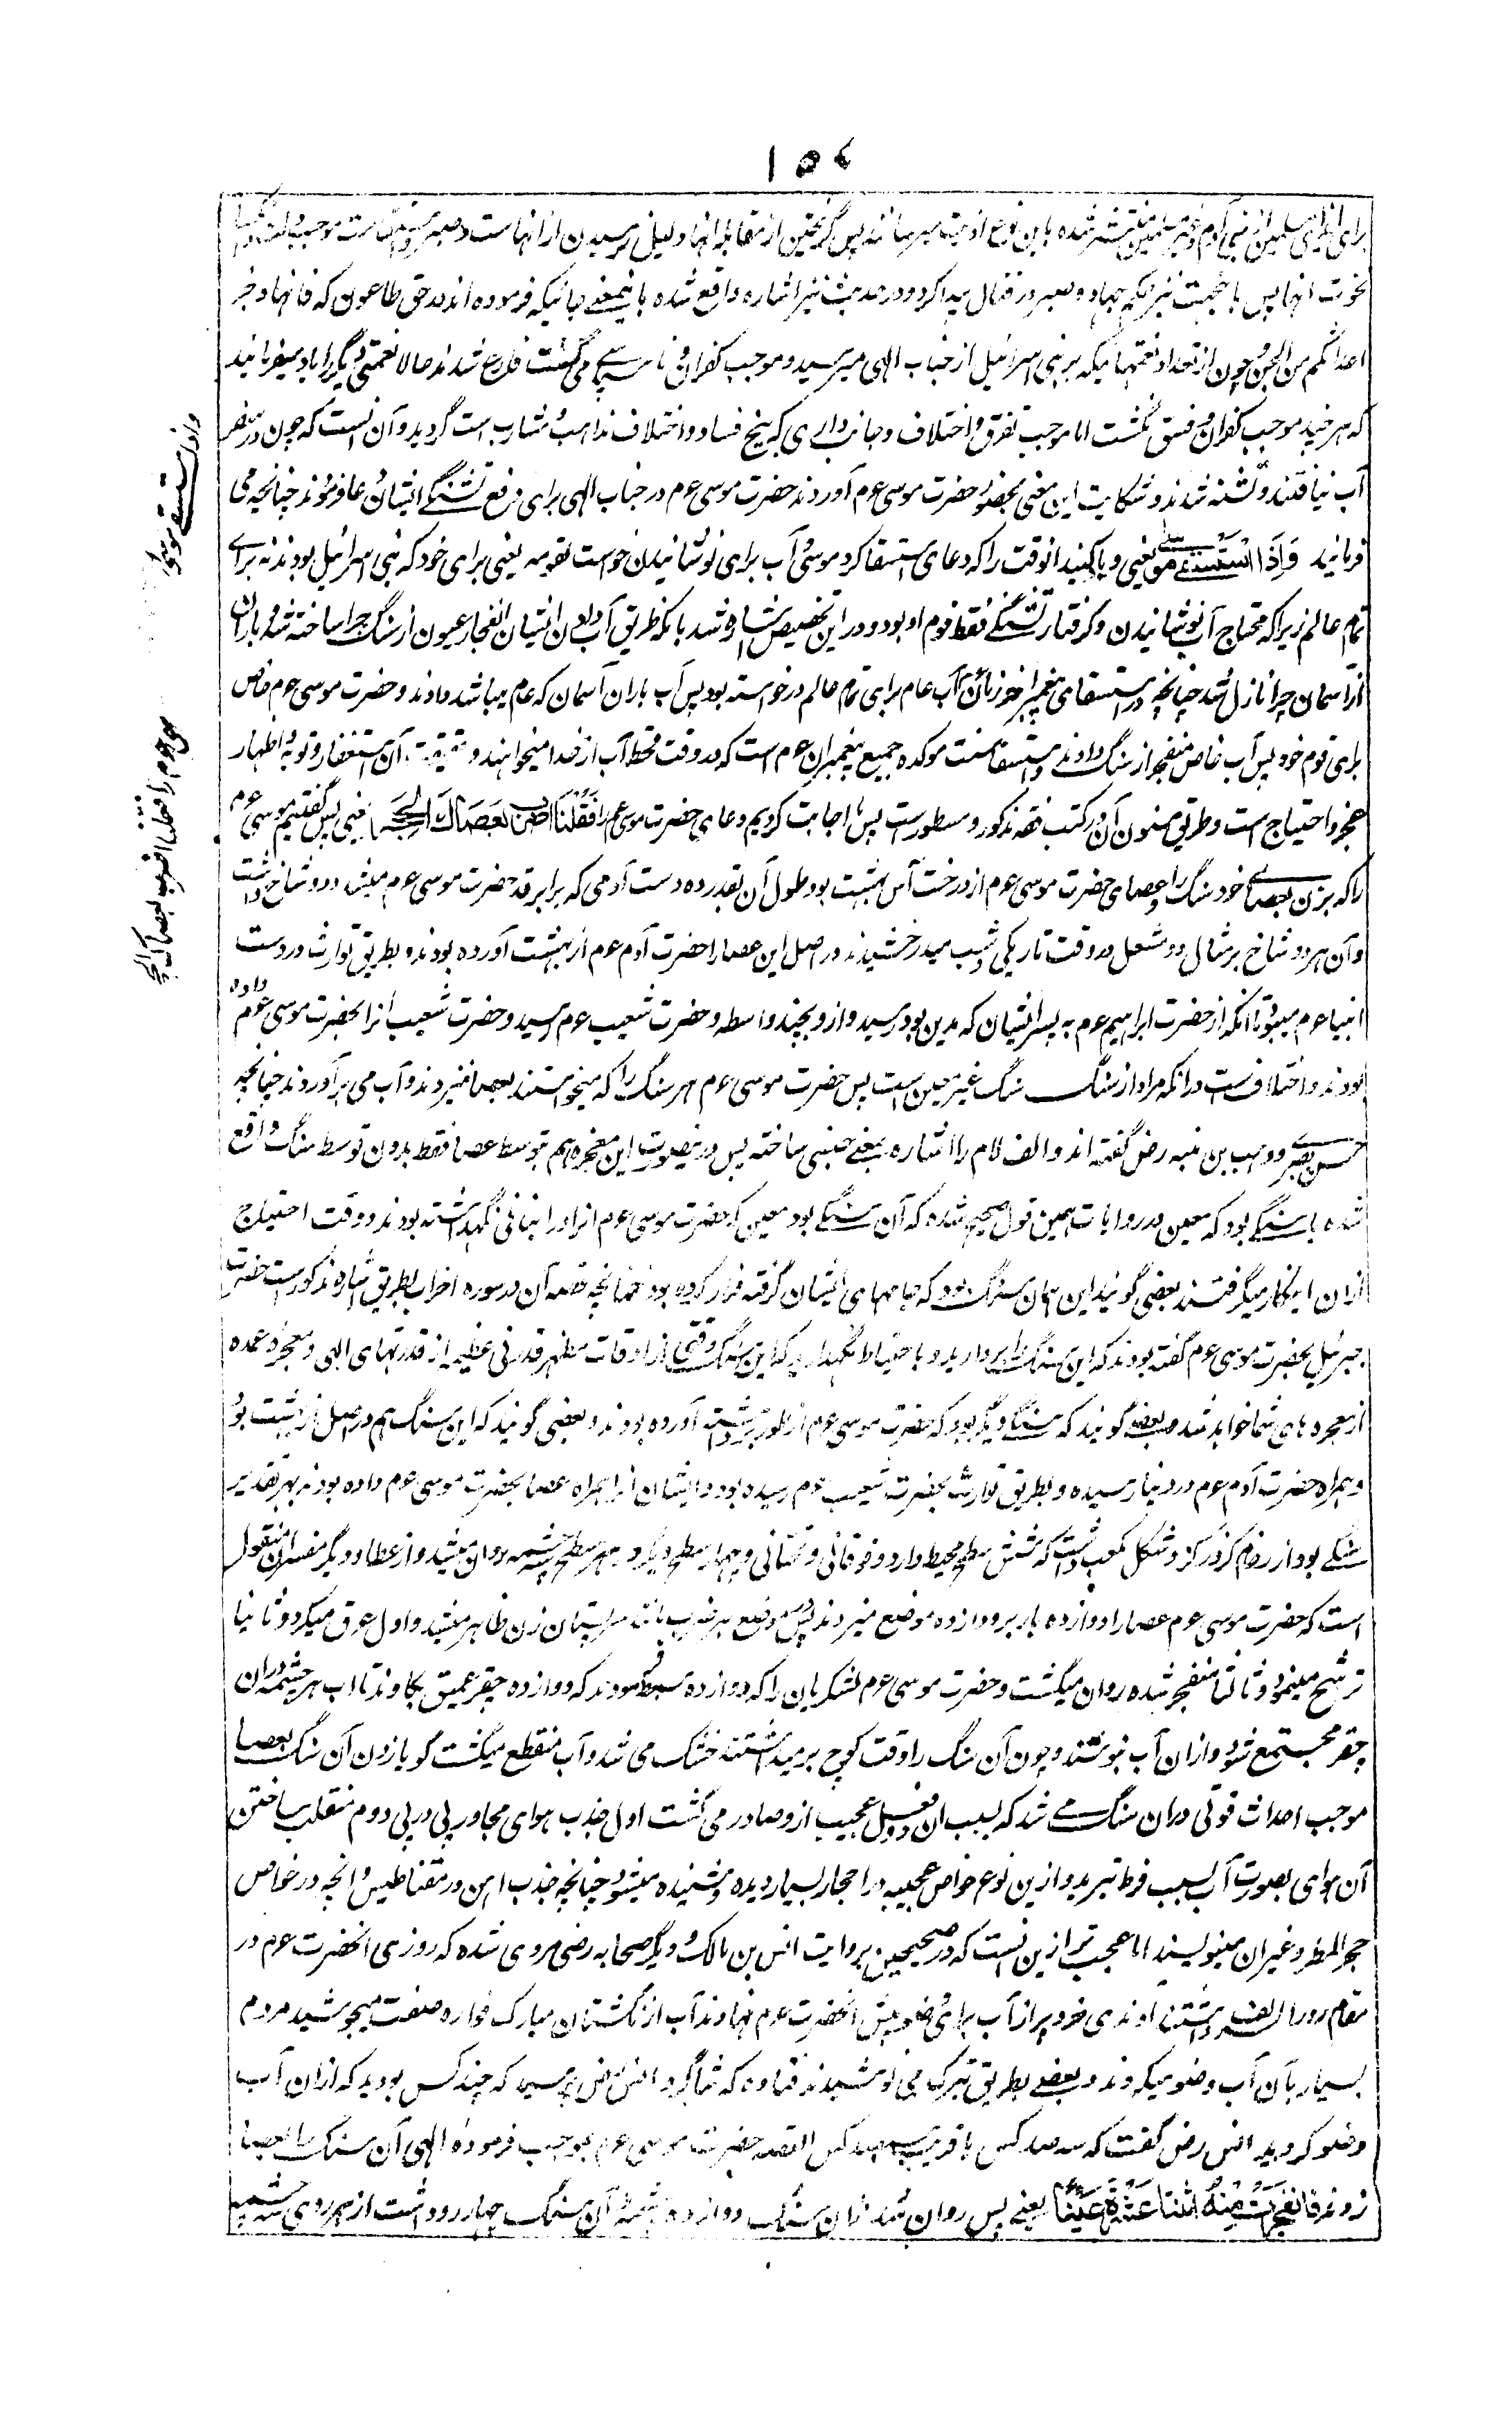 برای ایذای مسلمین از بنی آدم و غیر مسلمین منتشر شده باین نوع اذیت میرسانند پس گریختن از مقابله انها دلیل ترسیدن از انهاست و صبر موجب
نخوت انها پس باین جهت نیز حکم جهاد و صبر در قتال پیدا کرد و در حدیث نیز اشاره واقع شده باینمعنی جائیکه فرموده اند در حق طاعون که فانها وخز
اعدائکم من الجن و چون از تعداد نعمتهائیکه بر بنی اسرائیل از جناب الهی میرسید و موجب کفران و ناسپاسی می گشت فارغ شدند حالا نعمتی دیگر را یاد میفرمانید
که هر چند موجب کفران و فسق نگشت اما موجب تفرق و اختلاف و جانبداری که بیخ فساد و اختلاف مذاهب و مشارب است گردید و آن انست که چون در سفر
آب نیافتند و تشنه شدند و شکایت این معنی بحضور حضرت موسی عوم آوردند حضرت موسی عوم در جناب الهی برای رفع تشنگی ایشان دعا فرمودند چنانچه می
فرمانید وَاِذِ اسْتَسْقٰی مُوسٰی یعنی و یاد کنید انوقت را که دعای استسقا کرد موسی و آب برای نوشانیدن خواست لقومه یعنی برای خود که بنی اسرائیل بودند نه برای
تمام عالم زیرا که محتاج آب نوشانیدن و گرفتار تشنگی فقط قوم او بود و در این تخصیص اشاره شد بانکه طریق آب دادن ایشان انفجار عیون از سنگ چرا ساخته شد و باران
از آسمان چرا نازل نشد چنانچه در استسقای پیغمبر آخر زمان آب عام برای تمام عالم درخواسته بود پس آب باران آسمان که عام میباشد دادند و حضرت موسی عوم خاص
برای قوم خود پس آب خاص منفجر از سنگ دادند و استسقا سنت موکده جمیع پیغمبران عوم است که در وقت قحط آب از خدا میخواهند و حقیقت آن استغفار و توبه و اظهار
عجز و احتیاج است و طریق مسنون آن در کتب فقه مذکور و مسطور است پس ما اجابت کردیم دعای حضرت موسی عوم را فَقُلْنَا اضْرِبْ بِعَصَاكَ الْحَجَرَ یعنی پس گفتیم موسی عوم
را که بزن بعصای خود سنگ را و عصای حضرت موسی عوم از درخت آس بهشت بود و طول آن بقدر ده دست آدمی که برابر قد حضرت موسی عوم میشد و دو شاخ داشت
و آن هر دو شاخ بر مثال دو مشعل در وقت تاریکی شب میدرخشیدند و در اصل این عصا را حضرت آدم عوم از بهشت آورده بودند و بطریق توارث در دست
انبیا عوم میبود تا آنکه از حضرت ابراهیم عوم به پسر ایشان که مدین بود رسید و از و بچند واسطه و حضرت شعیب عوم رسید و حضرت شعیب انرا بحضرت موسی عوم داده
بودند و اختلاف است در انکه مراد از سنگ سنگ غیر معین است پس حضرت موسی عوم هر سنگ را که میخواستند بعصا میزدند و آب می برآوردند چنانچه
حسن بصری و وهب بن منبه رض گفته اند و الف لام را اشاره بمعنی جنسی ساخته پس درینصورت این معجزه هم بتوسط عصا فقط بدون توسط سنگ واقع
شده یا سنگی بود که معین در روایات همین قول صحیح شده که آن سنگی بود معین که حضرت موسی عوم انرا در انبانی نگهداشته بودند و وقت احتیاج
ازان این کار میگرفتند بعضی گویند این همان سنگ بود که جامهای ایشان گرفته فرار کرده بود چنانچه قصه آن در سوره احزاب بطریق اشاره مذکور است حضرت
جبرئیل بحضرت موسی عوم گفته بودند که این سنگ را بردارید و با احتیاط نگهدارید که این سنگ وقتی از اوقات مظهر قدرتی عظیم از قدرتهای الهی و معجزه عمده
از معجزه های شما خواهد شد و بعضی گویند که سنگی دیگر بود که حضرت موسی عوم از طور برداشته آورده بودند و بعضی گویند که این سنگ هم در اصل از بهشت بود
و همراه حضرت آدم عوم در دنیا رسیده و بطریق توارث بحضرت شعیب عوم رسیده بود و ایشان انرا همراه عصا بحضرت موسی عوم داده بودند بهر تقدیر
سنگی بود از رخام گز در گز و شکل مکعب داشت که شش سطح محیط دارد فوقانی و تحتانی و چهار سطح دیگر و بهر سطح سه چشمه روان میشد و از عطا و دیگر مفسران منقول
است که حضرت موسی عوم عصا را دوازده بار بر دوازده موضع میزدند پس در موضع هر ضرب مانند سر پستان زن ظاهر میشد و اول عرق میکرد و ثانیا
ترشح مینمود و ثالثا منفجر شده روان میگشت و حضرت موسی عوم لشکریان را که دوازده سبط بودند فرمود که دوازده حفر عمیق بکاوند تا آب هر چشمه دران
حفر مجتمع شود و ازان آب نوشند و چون آن سنگ را وقت کوچ برمیداشتند خشک می شد و آب منقطع میگشت گویا زدن آن سنگ بعصا
موجب احداث قوتی دران سنگ می شد که بسبب ان دو فعل عجیب از و صادر می گشت اول جذب هوای مجاور پی در پی دوم منقلب ساختن
آن هوا بصورت آب بسبب فرط تبرید و ازین نوع خواص عجیبه در احجار بسیار دیده و شنیده میشود چنانچه جذب اهن در مقناطیس و انچه در خواص
حجر المطر و غیر ان مینویسند اما عجب تر ازین انست که در صحیحین بروایت انس بن مالک و دیگر صحابه رضی مروی شده که روزی انحضرت عوم در
مقام زورا تشریف داشتند اوندی خرد پر از آب برای وضو پیش انحضرت عوم نهادند آب از انگشتان مبارک فواره صفت میجوشید مردم
بسیار بآن آب وضو میکردند و بعضی بطریق تبرک می نوشیدند قتاده که شاگرد انس رض پرسید که چند کس بودید که ازان آب
وضو کردید انس رض گفت که سه صد کس یا قریب سه صد کس القصه حضرت موسی عوم بموجب فرموده الهی آن سنگ را بعصا
زدند فَانْفَجَرَتْ مِنْهُ اثْنَتَا عَشْرَةَ عَيْنًا یعنی پس روان شد ازان سنگ دوازده چشمه آن سنگ چهار رو داشت از هر روی سه چشمه
واذ استسقی موسی
لقومه فقلنا اضرب بعصاک الحجر